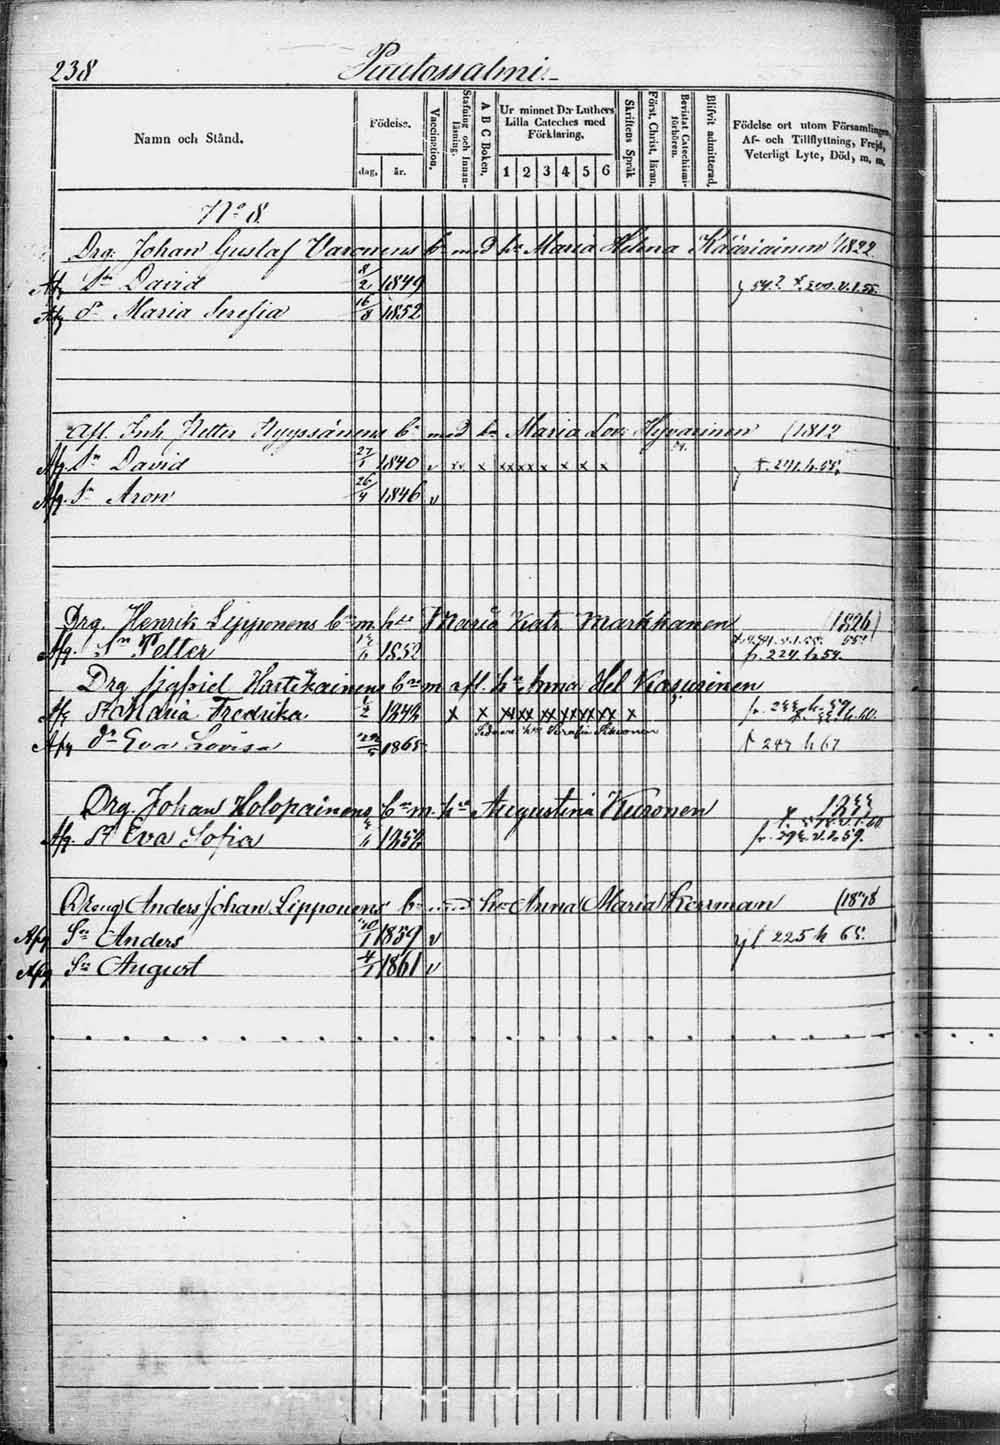 238 Puutossalmi.
Namn och Stånd.
Födelse.
dag, år.
Vaccination.
Stafning och Innan-läsning.
A B C Boken.
Ur minnet D:r Luthers Lilla Cateches med Förklaring.
1 2 3 4 5 6
Skriftens Språk
Först. Christ. läran.
Bevistat Catechismi-förhören.
Blifvit admitterad.
Födelse ort utom Församlingen,
Af- och Tillflyttning, Frejd,
Veterligt Lyte, Död, m. m.
No 8.
Drg. Johan Gustaf Varonens bn med h. Maria Helena Kääriainen (1822
Afg Sn David 8/2 1849
Afg dr Maria Serefia 16/8 1852
Afl. Inh. Petter Hyyssönens bn med h. Maria Lov. Hyvärinen (1812
Afg. Sn David 27/1 1840 v x x x x x x x x
Afg. Sn Aron 26/4 1846 v
Drg. Henrik Lipponens bn m. hu Maria Katr. Markkanen (1826)
Afg. Sn Petter 1852
fr. 224. h 54.
Drg Gabriel Hartikainens bn m afl. hu Anna Hel Kasurinen
Afg Dr Maria Fredrika 1842 x x xx xx xx xx xx x
Afg dr Eva Lovisa 1865 f 247 h 67
Drg. Johan Holopainens bn m. hu Augustina Kuronen
Afg. Dr Eva Sofia 1852
Dreng Anders Johan Lipponens bn med hu Anna Maria Korrman (1878
Afg Sn Anders 20/1 1859 v 225 h 65.
Afg Sn August 4/1 1861 v